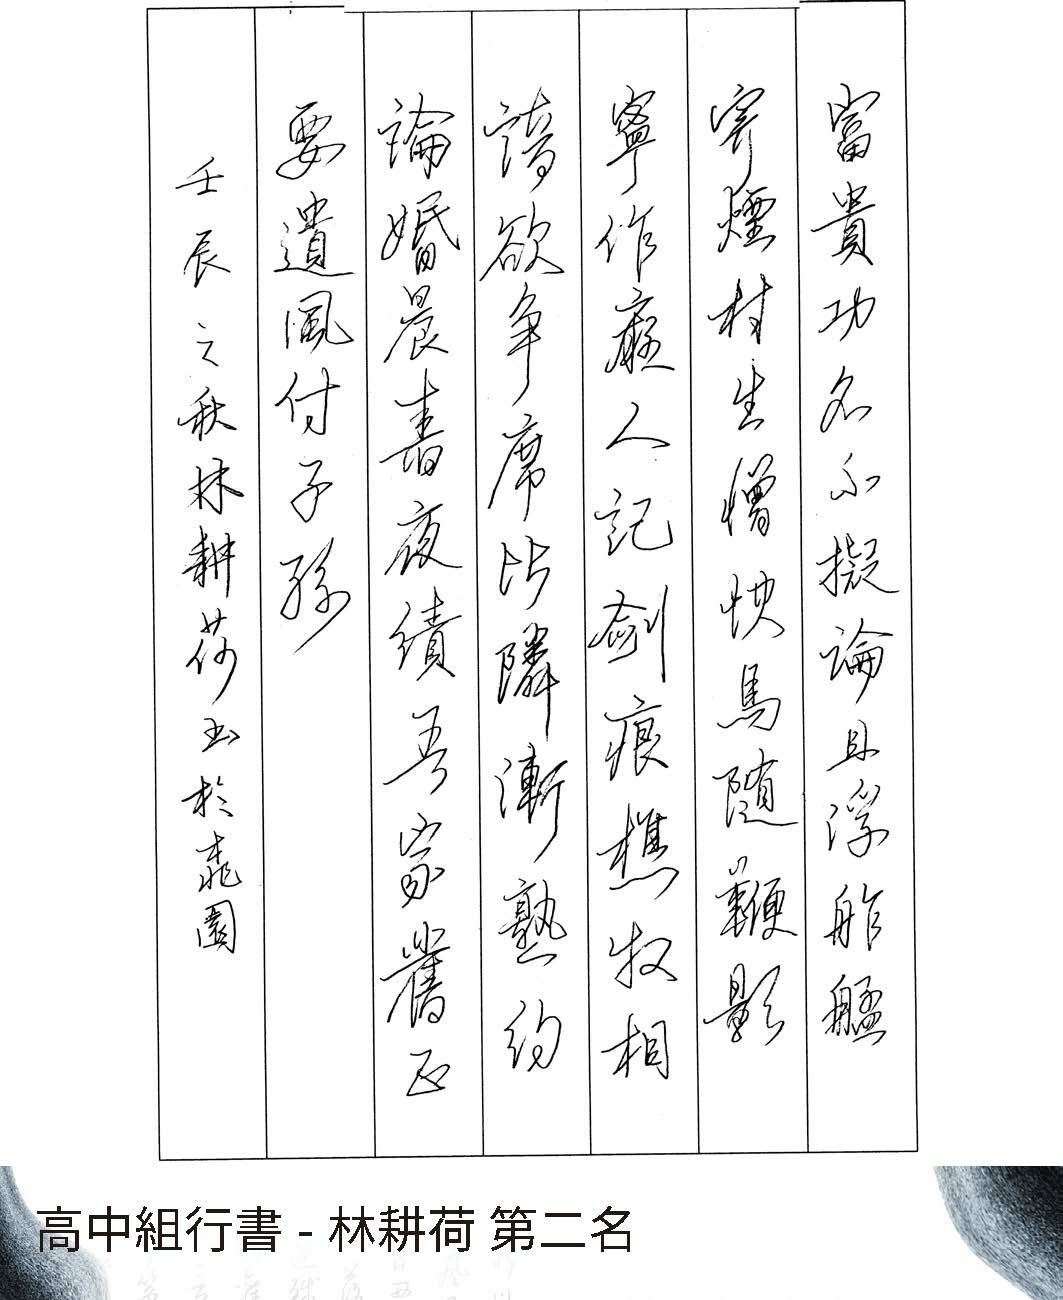 富貴功名不擬論且浮舴艋
寄煙村生憎快馬隨鞭影
寧作癡人記劍痕樵牧相
諳欲爭席比隣漸熟約
論婚晨舂夜績吾家舊正
要遺風付子孫
壬辰之秋林耕荷書於桃園
高中組行書 - 林耕荷 第二名